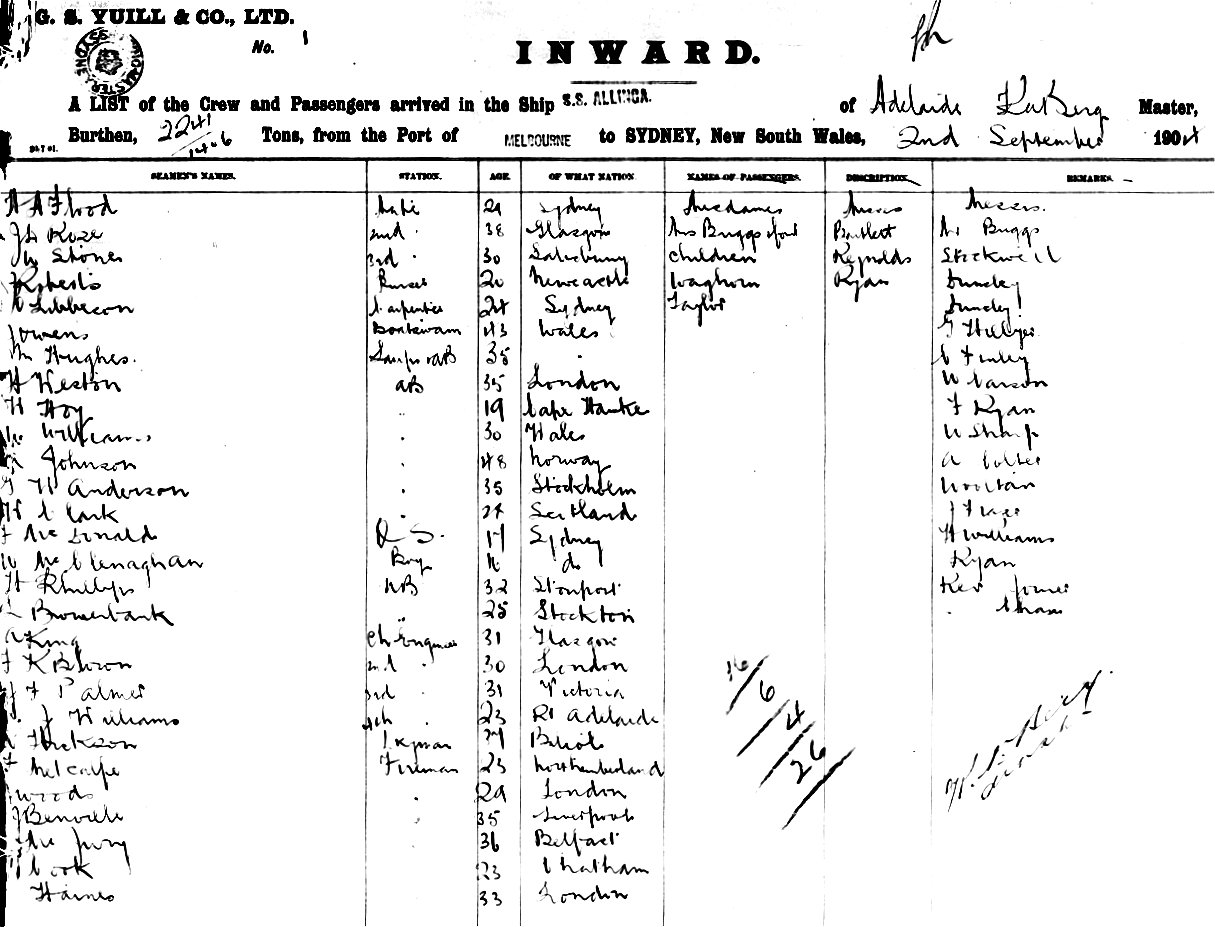 G. S. YUILL & CO., LTD.
No. 1
INWARD.
A LIST of the Crew and Passengers arrived in the Ship S.S. ALLINGA. of Adelaide Master,
Burthen, 2241 Tons, from the Port of MELBOURNE to SYDNEY, New South Wales, 2nd September 1904
1406
SEAMEN'S NAMES. STATION. AGE. OF WHAT NATION. NAMES OF PASSENGERS. DESCRIPTION. REMARKS.
Flood Mate 29 Sydney Mesdames Misses Messrs.
Rose 2nd 38 Glasgow Mrs Briggs Bartlett Briggs
Stones 3rd 30 Salisbury children Reynolds Stockwell
Roberts Purser 20 Newcastle Waghorn Ryan
Carpenter 24 Sydney Taylor
Owens 43 Wales G
Hughes. Lamps & AB 35 Finley
H Weston AB 35 London W Carson
H Hoy 19 Cape Hawke F Ryan
Williams 30 Wales W Sharp
Johnson 48 Norway A
G H Anderson 35 Stockholm
H Clark Scotland
F McDonald O S. 17 Sydney H Williams
McClenaghan Boy do Ryan
H Phillips AB 32 Stonport Rev Jones
Bowerbank 25 Stockton
A King Ch Engineer 31 Glasgow
F K Brown 2nd 30 London
F Palmer 3rd 31 Victoria
J Williams 4th 23 Pt Adelaide
Hickson Bristol
F Metcalfe Fireman 23 Northumberland
Woods 29 London
J Benville 35 Liverpool
McJury 36 Belfast
Cook 23 Chatham
Haines 33 London
16
6
4
26